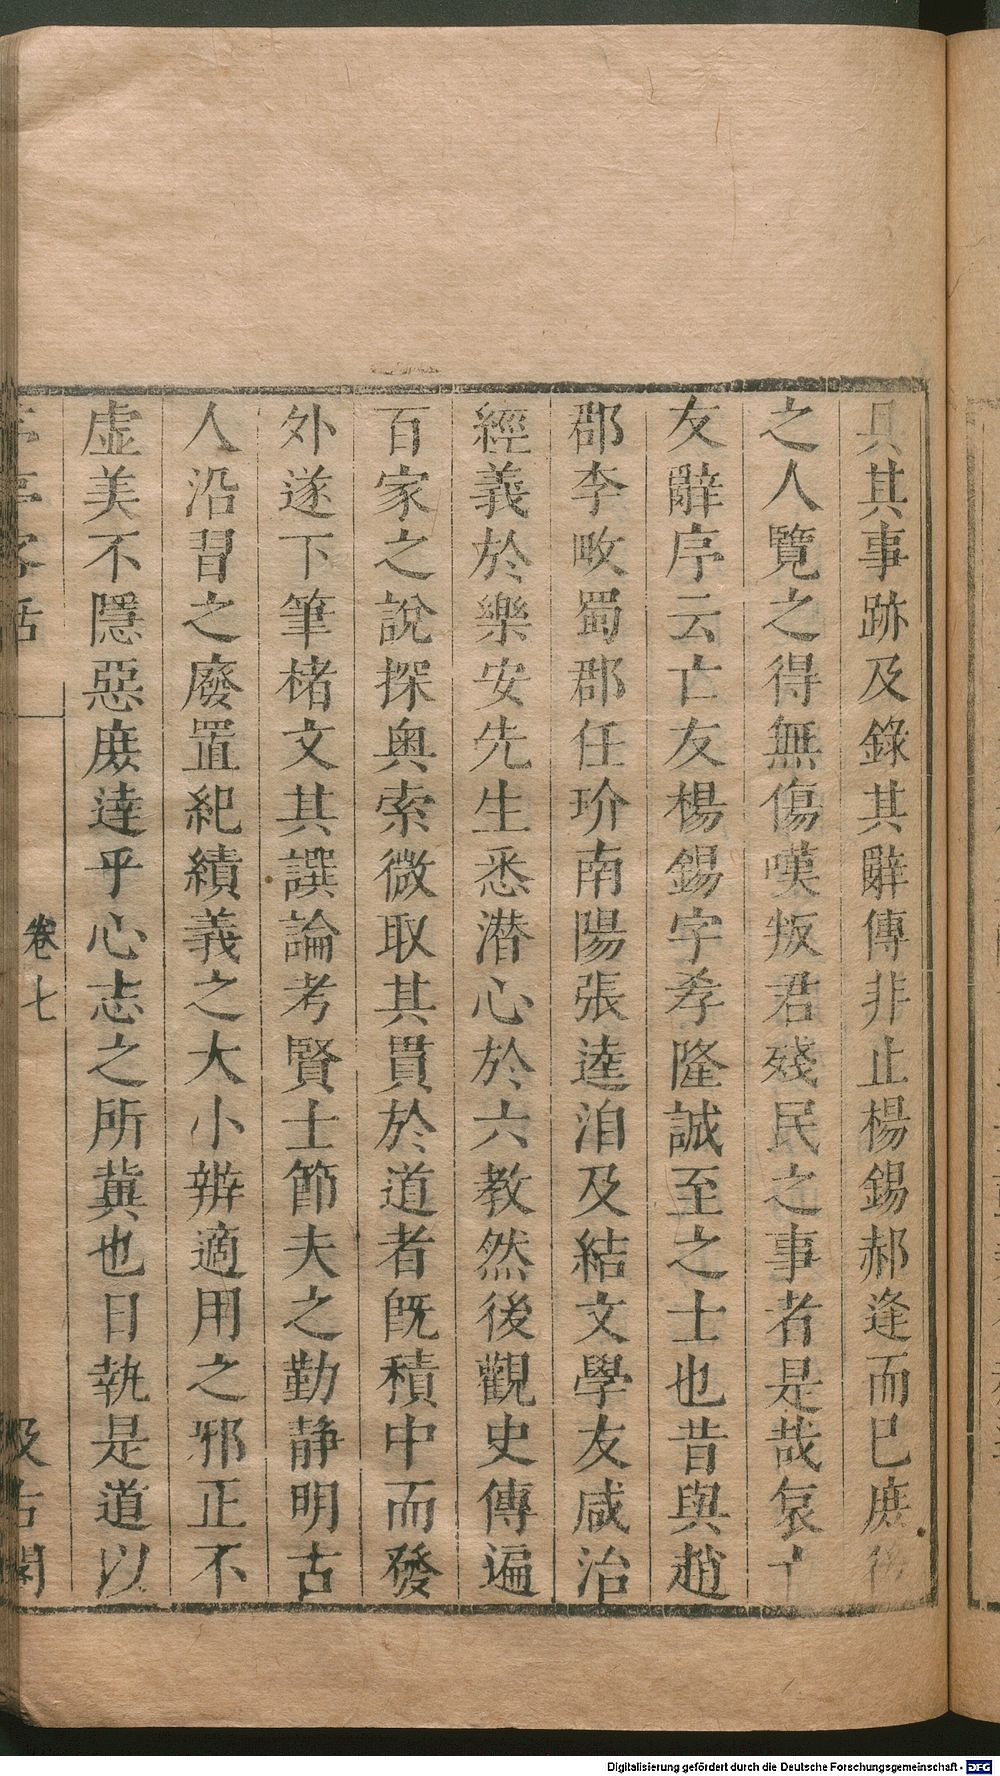 具其事跡及錄其辭傳非止楊錫郝逢而已庶後
之人覽之得無傷嘆叛君殘民之事者是哉哀亡
友辭序云亡友楊錫字孝隆誠至之士也昔與趙
郡李畋蜀郡任玠南陽張逵洎及結文學友咸治
經義於樂安先生悉潜心於六教然後觀史傳遍
百家之說探奥索微取其貫於道者旣積中而發
外遂下筆楮文其譔論考賢士節夫之勤静明古
人沿習之廢置紀績義之大小辨適用之邪正不
虚美不隱惡庻達乎心志之所冀也日執是道以
卷七
Digitalisierung gefördert durch die Deutsche Forschungsgemeinschaft - DFG